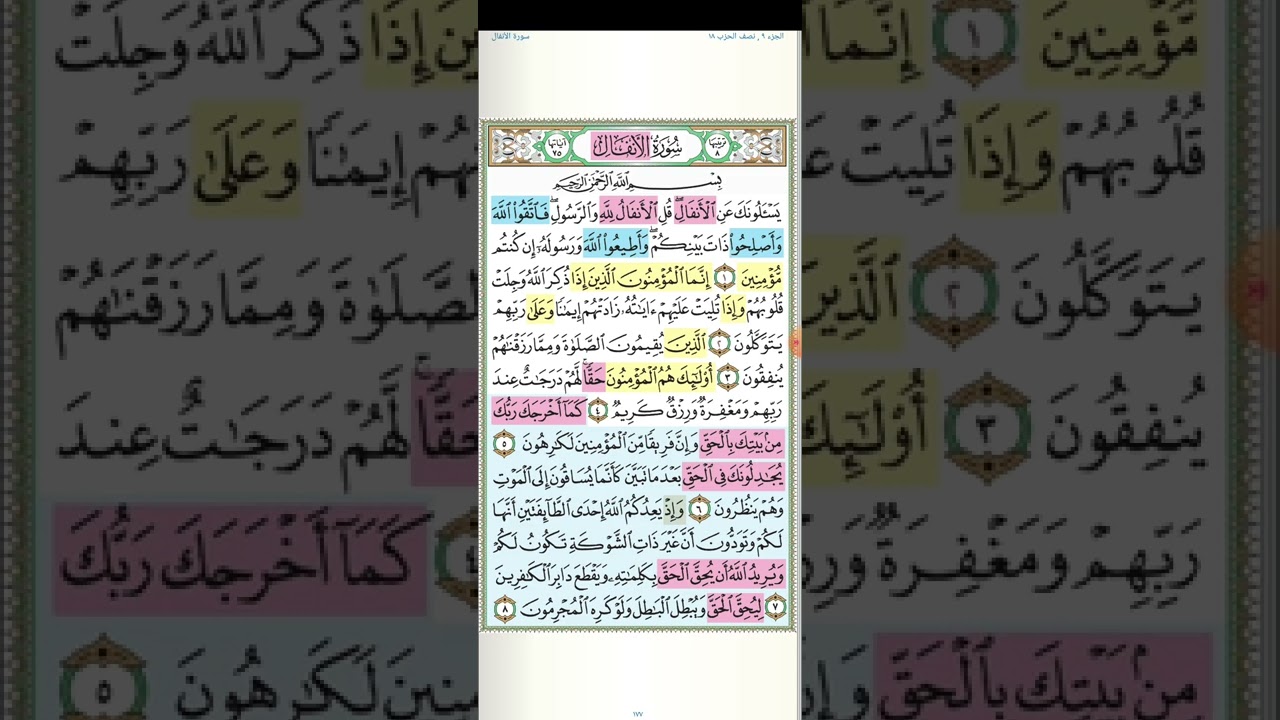 الجزء ٩ , نصف الحزب ١٨
سورة الأنفال
ترتيبها ٨
سُورَةُ الأَنفَالِ
آياتها ٧٥
بِسْمِ اللَّهِ الرَّحْمَٰنِ الرَّحِيمِ
يَسْـَٔلُونَكَ عَنِ ٱلْأَنفَالِۖ قُلِ ٱلْأَنفَالُ لِلَّهِ وَٱلرَّسُولِۖ فَٱتَّقُوا۟ ٱللَّهَ
وَأَصْلِحُوا۟ ذَاتَ بَيْنِكُمْۖ وَأَطِيعُوا۟ ٱللَّهَ وَرَسُولَهُۥٓ إِن كُنتُم
مُّؤْمِنِينَ ١ إِنَّمَا ٱلْمُؤْمِنُونَ ٱلَّذِينَ إِذَا ذُكِرَ ٱللَّهُ وَجِلَتْ
قُلُوبُهُمْ وَإِذَا تُلِيَتْ عَلَيْهِمْ ءَايَٰتُهُۥ زَادَتْهُمْ إِيمَٰنًا وَعَلَىٰ رَبِّهِمْ
يَتَوَكَّلُونَ ٢ ٱلَّذِينَ يُقِيمُونَ ٱلصَّلَوٰةَ وَمِمَّا رَزَقْنَٰهُمْ
يُنفِقُونَ ٣ أُو۟لَٰٓئِكَ هُمُ ٱلْمُؤْمِنُونَ حَقًّاۚ لَّهُمْ دَرَجَٰتٌ عِندَ
رَبِّهِمْ وَمَغْفِرَةٌ وَرِزْقٌ كَرِيمٌ ٤ كَمَآ أَخْرَجَكَ رَبُّكَ
مِنۢ بَيْتِكَ بِٱلْحَقِّ وَإِنَّ فَرِيقًا مِّنَ ٱلْمُؤْمِنِينَ لَكَٰرِهُونَ ٥
يُجَٰدِلُونَكَ فِى ٱلْحَقِّ بَعْدَ مَا تَبَيَّنَ كَأَنَّمَا يُسَاقُونَ إِلَى ٱلْمَوْتِ
وَهُمْ يَنظُرُونَ ٦ وَإِذْ يَعِدُكُمُ ٱللَّهُ إِحْدَى ٱلطَّآئِفَتَيْنِ أَنَّهَا
لَكُمْ وَتَوَدُّونَ أَنَّ غَيْرَ ذَاتِ ٱلشَّوْكَةِ تَكُونُ لَكُمْ
وَيُرِيدُ ٱللَّهُ أَن يُحِقَّ ٱلْحَقَّ بِكَلِمَٰتِهِۦ وَيَقْطَعَ دَابِرَ ٱلْكَٰفِرِينَ
٧ لِيُحِقَّ ٱلْحَقَّ وَيُبْطِلَ ٱلْبَٰطِلَ وَلَوْ كَرِهَ ٱلْمُجْرِمُونَ ٨
١٧٧